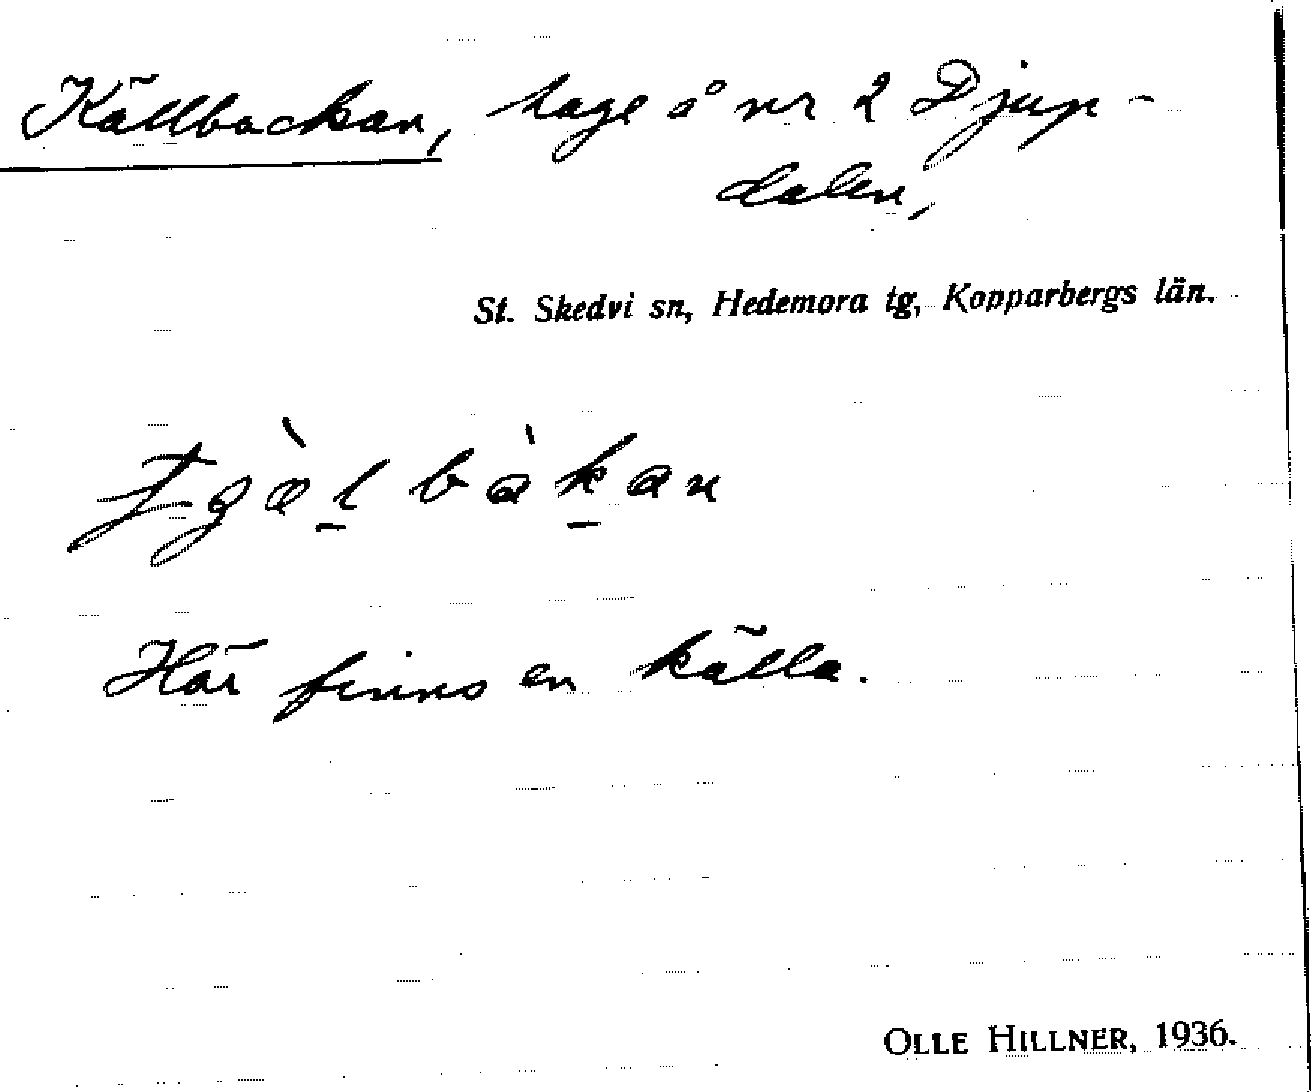 Källbackan, hage å nr 2 Djup-
dalen,
St. Skedvi sn, Hedemora tg, Kopparbergs län.
Här finns en källa.
OLLE HILLNER, 1936.